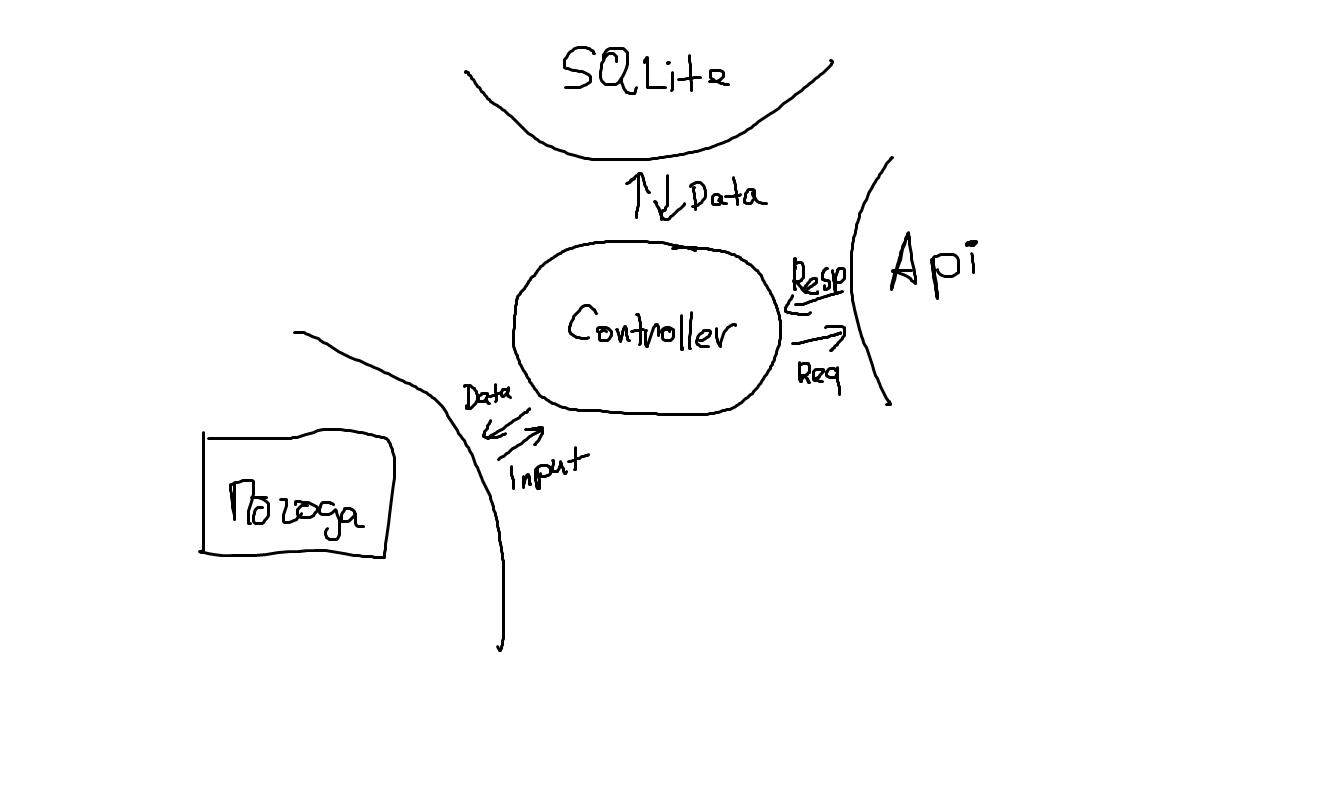 SQLite
Data
Resp
Api
Controller
Req
Data
Input
Погода